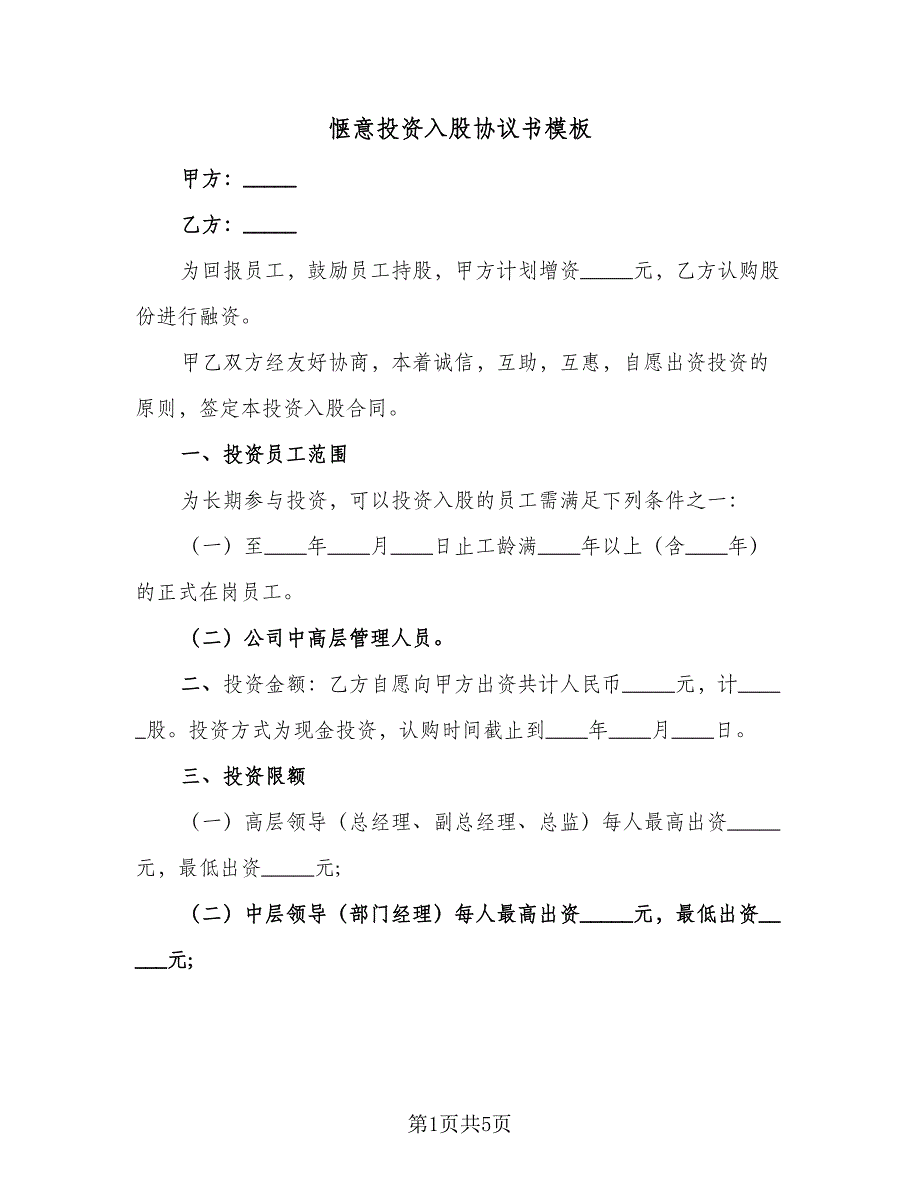 惬意投资入股协议书模板
甲方：_____
乙方：_____
为回报员工，鼓励员工持股，甲方计划增资_____元，乙方认购股
份进行融资。
甲乙双方经友好协商，本着诚信，互助，互惠，自愿出资投资的
原则，签定本投资入股合同。
一、投资员工范围
为长期参与投资，可以投资入股的员工需满足下列条件之一：
（一）至____年____月____日止工龄满____年以上（含____年）
的正式在岗员工。
（二）公司中高层管理人员。
二、投资金额：乙方自愿向甲方出资共计人民币_____元，计____
_股。投资方式为现金投资，认购时间截止到____年____月____日。
三、投资限额
（一）高层领导（总经理、副总经理、总监）每人最高出资_____
元，最低出资_____元;
（二）中层领导（部门经理）每人最高出资_____元，最低出资__
___元;
第1页共5页